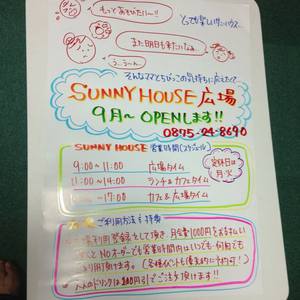 もっとあそびたいー!!
とっても楽しいサニーハウス…
また明日も来たいなぁ…
う、うーん
そんなママとちびっこの気持ちに応えて
SUNNY HOUSE 広場
9月〜 OPENします!!
0875-24-8690
SUNNY HOUSE 営業時間(スケジュール)
9:00〜11:00 広場タイム
11:00〜14:00 ランチ&カフェタイム
〜17:00 カフェ&広場タイム
定休日は
月、火
ご利用方法&特典
利用登録をして頂き 月会費1000円をお支払い
くと NOオーダーでも営業時間内はいつでも何回でも
利用頂けます。(各種イベントも優先的にご予約可!)
大人のドリンクは100円引でご注文頂けます!!